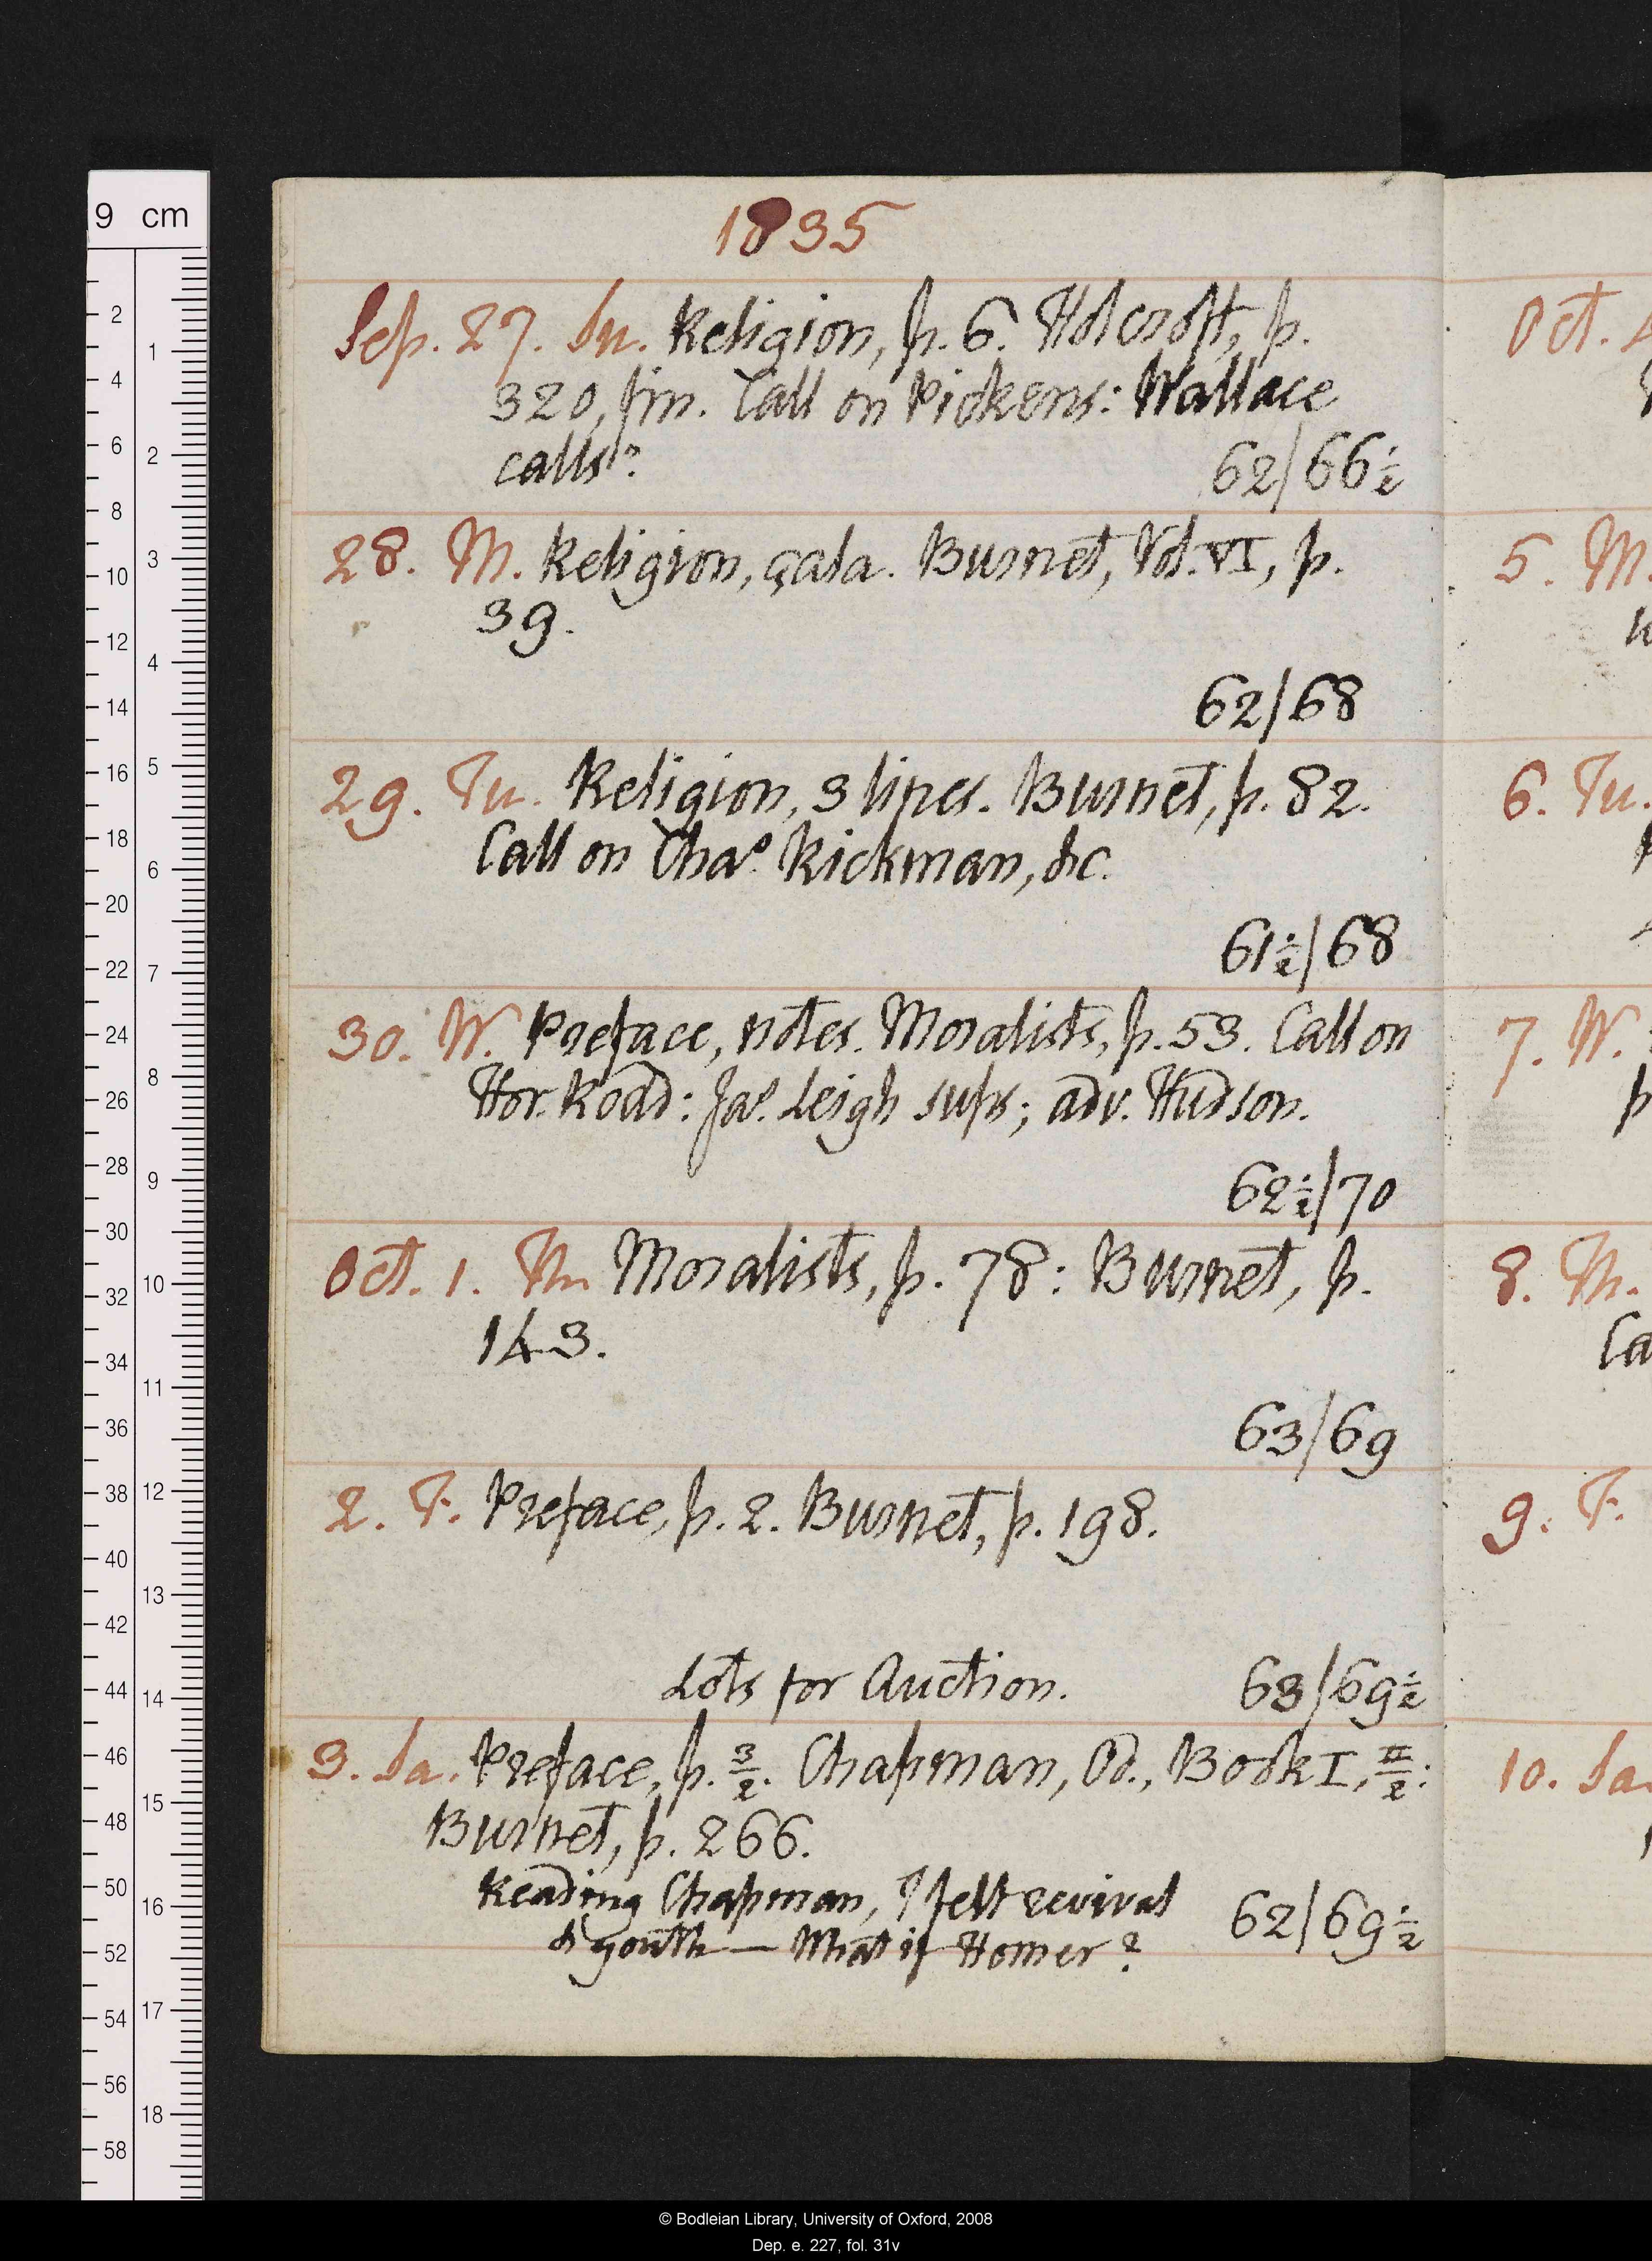 1835
Sep. 27. Su. Religion, p. 6. Holcroft, p.
320, fin. Call on Pickens: Wallace
calls?
62/66½
28. M. Religion, çala. Burnet, Vol. VI, p.
39.
62/68
29. Tu. Religion, 3 lines. Burnet, p. 82.
Call on Chaˢ. Rickman, &c.
61½/68
30. W. Preface, notes. Moralists, p. 53. Call on
Hor. Road: Jaˢ. Leigh sups; adv. Hudson.
62½/70
Oct. 1. Th. Moralists, p. 78: Burnet, p.
143.
63/69
2. F. Preface, p. 2. Burnet, p. 198.
Lots for Auction. 63/69½
3. Sa. Preface, p. 3/2. Chapman, Od., Book I, II/2:
Burnet, p. 266.
Reading Chapman, I felt revival
of youth — What if Homer?
62/69½
Oct.
5. M.
6. Tu.
7. W.
p
8. Th.
Ca
9. F.
10. Sa
9 cm
2
4
6
8
10
12
14
16
18
20
22
24
26
28
30
32
34
36
38
40
42
44
46
48
50
52
54
56
58
1
2
3
4
5
6
7
8
9
10
11
12
13
14
15
16
17
18
© Bodleian Library, University of Oxford, 2008
Dep. e. 227, fol. 31v